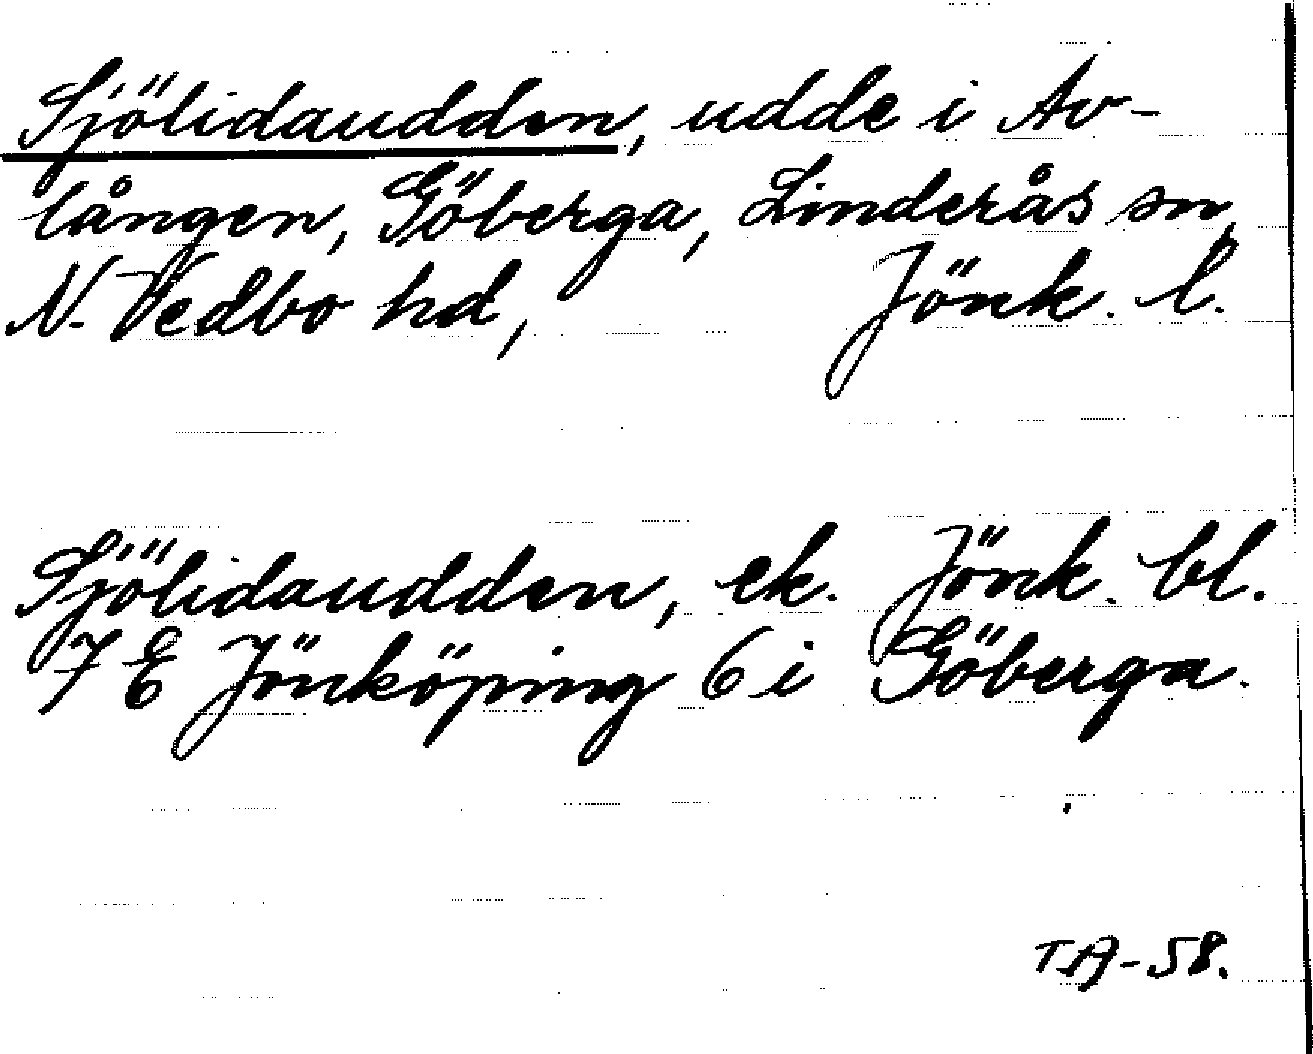 Sjölidaudden, udde i Av-
lången, Göberga, Linderås sn,
N. Vedbo hd, Jönk. l.
Sjölidaudden, ek. Jönk. bl.
7 E Jönköping 6 i Göberga.
TA-58.